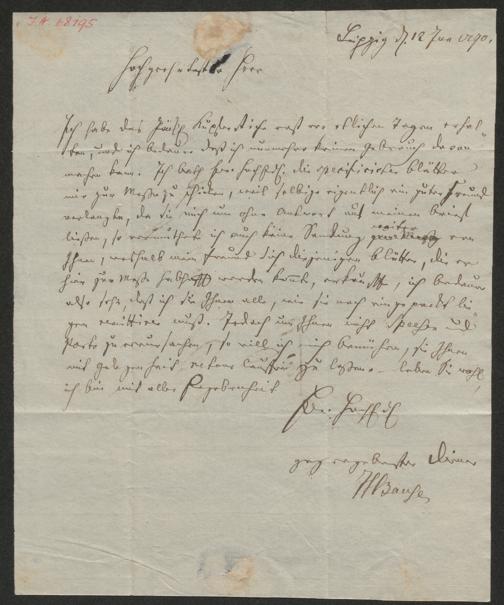 I.N. 68795
Leipzig d. 12 Jun 1790.
Hochgeehrtester Herr
Ich habe das Kupferstiche erst vor etlichen Tagen erhal-
ten, und ich bedaure daß ich nunmehro keinen Gebrauch davon
machen kann. Ich bath die specificirten blätter
mir zur Messe zu schicken, weil selbige eigentlich ein guter Freund
verlangte, da Sie mich nun ohne Antwort auf meinen brief
ließen, so vermuthete ich auch keine Sendung weiter von
Ihnen, weshalb mein Freund sich diejenigen blätter, die er
hier zur Messe habhafft werden konnte, ich bedaure
also sehr, daß ich Ihnen alle, wie sie noch eingepackt lie-
gen remittiren muß. Jedoch um Ihnen nicht Speesen und
Porto zu verursachen, so will ich mich bemühen, sie Ihnen
mit gelegenheit zu lassen. leben Sie wohl,
ich bin mit aller Ergebenheit
ergebenster Diener
JFBause